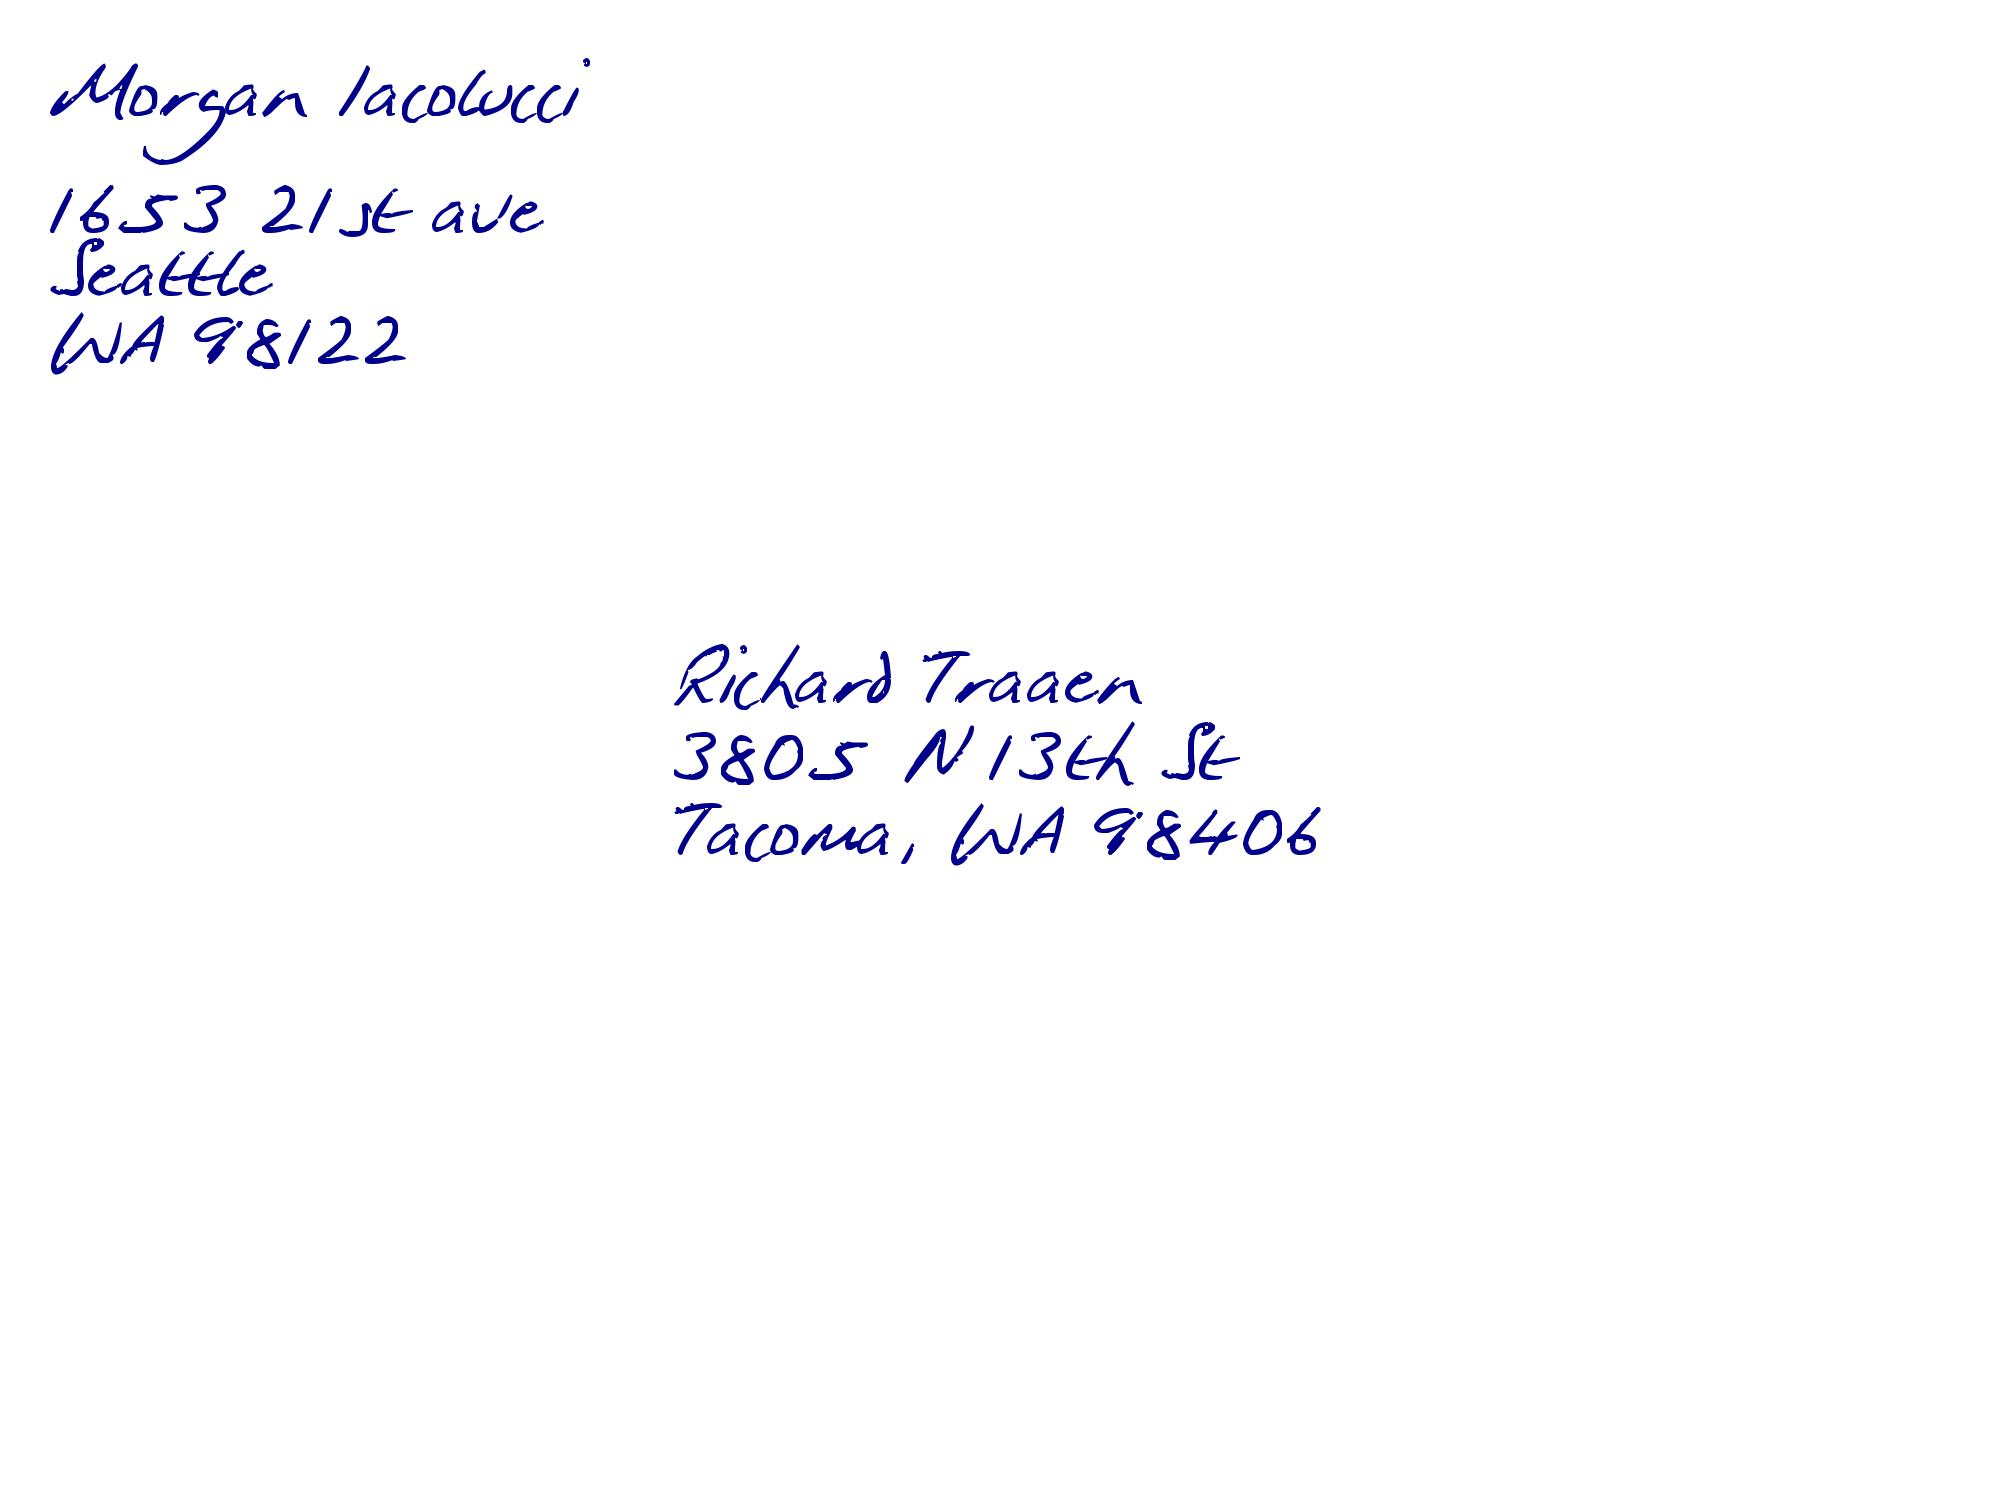 Morgan Iacolucci
1653 21st ave
Seattle
WA 98122
Richard Traaen
3805 N 13th St
Tacoma, WA 98406